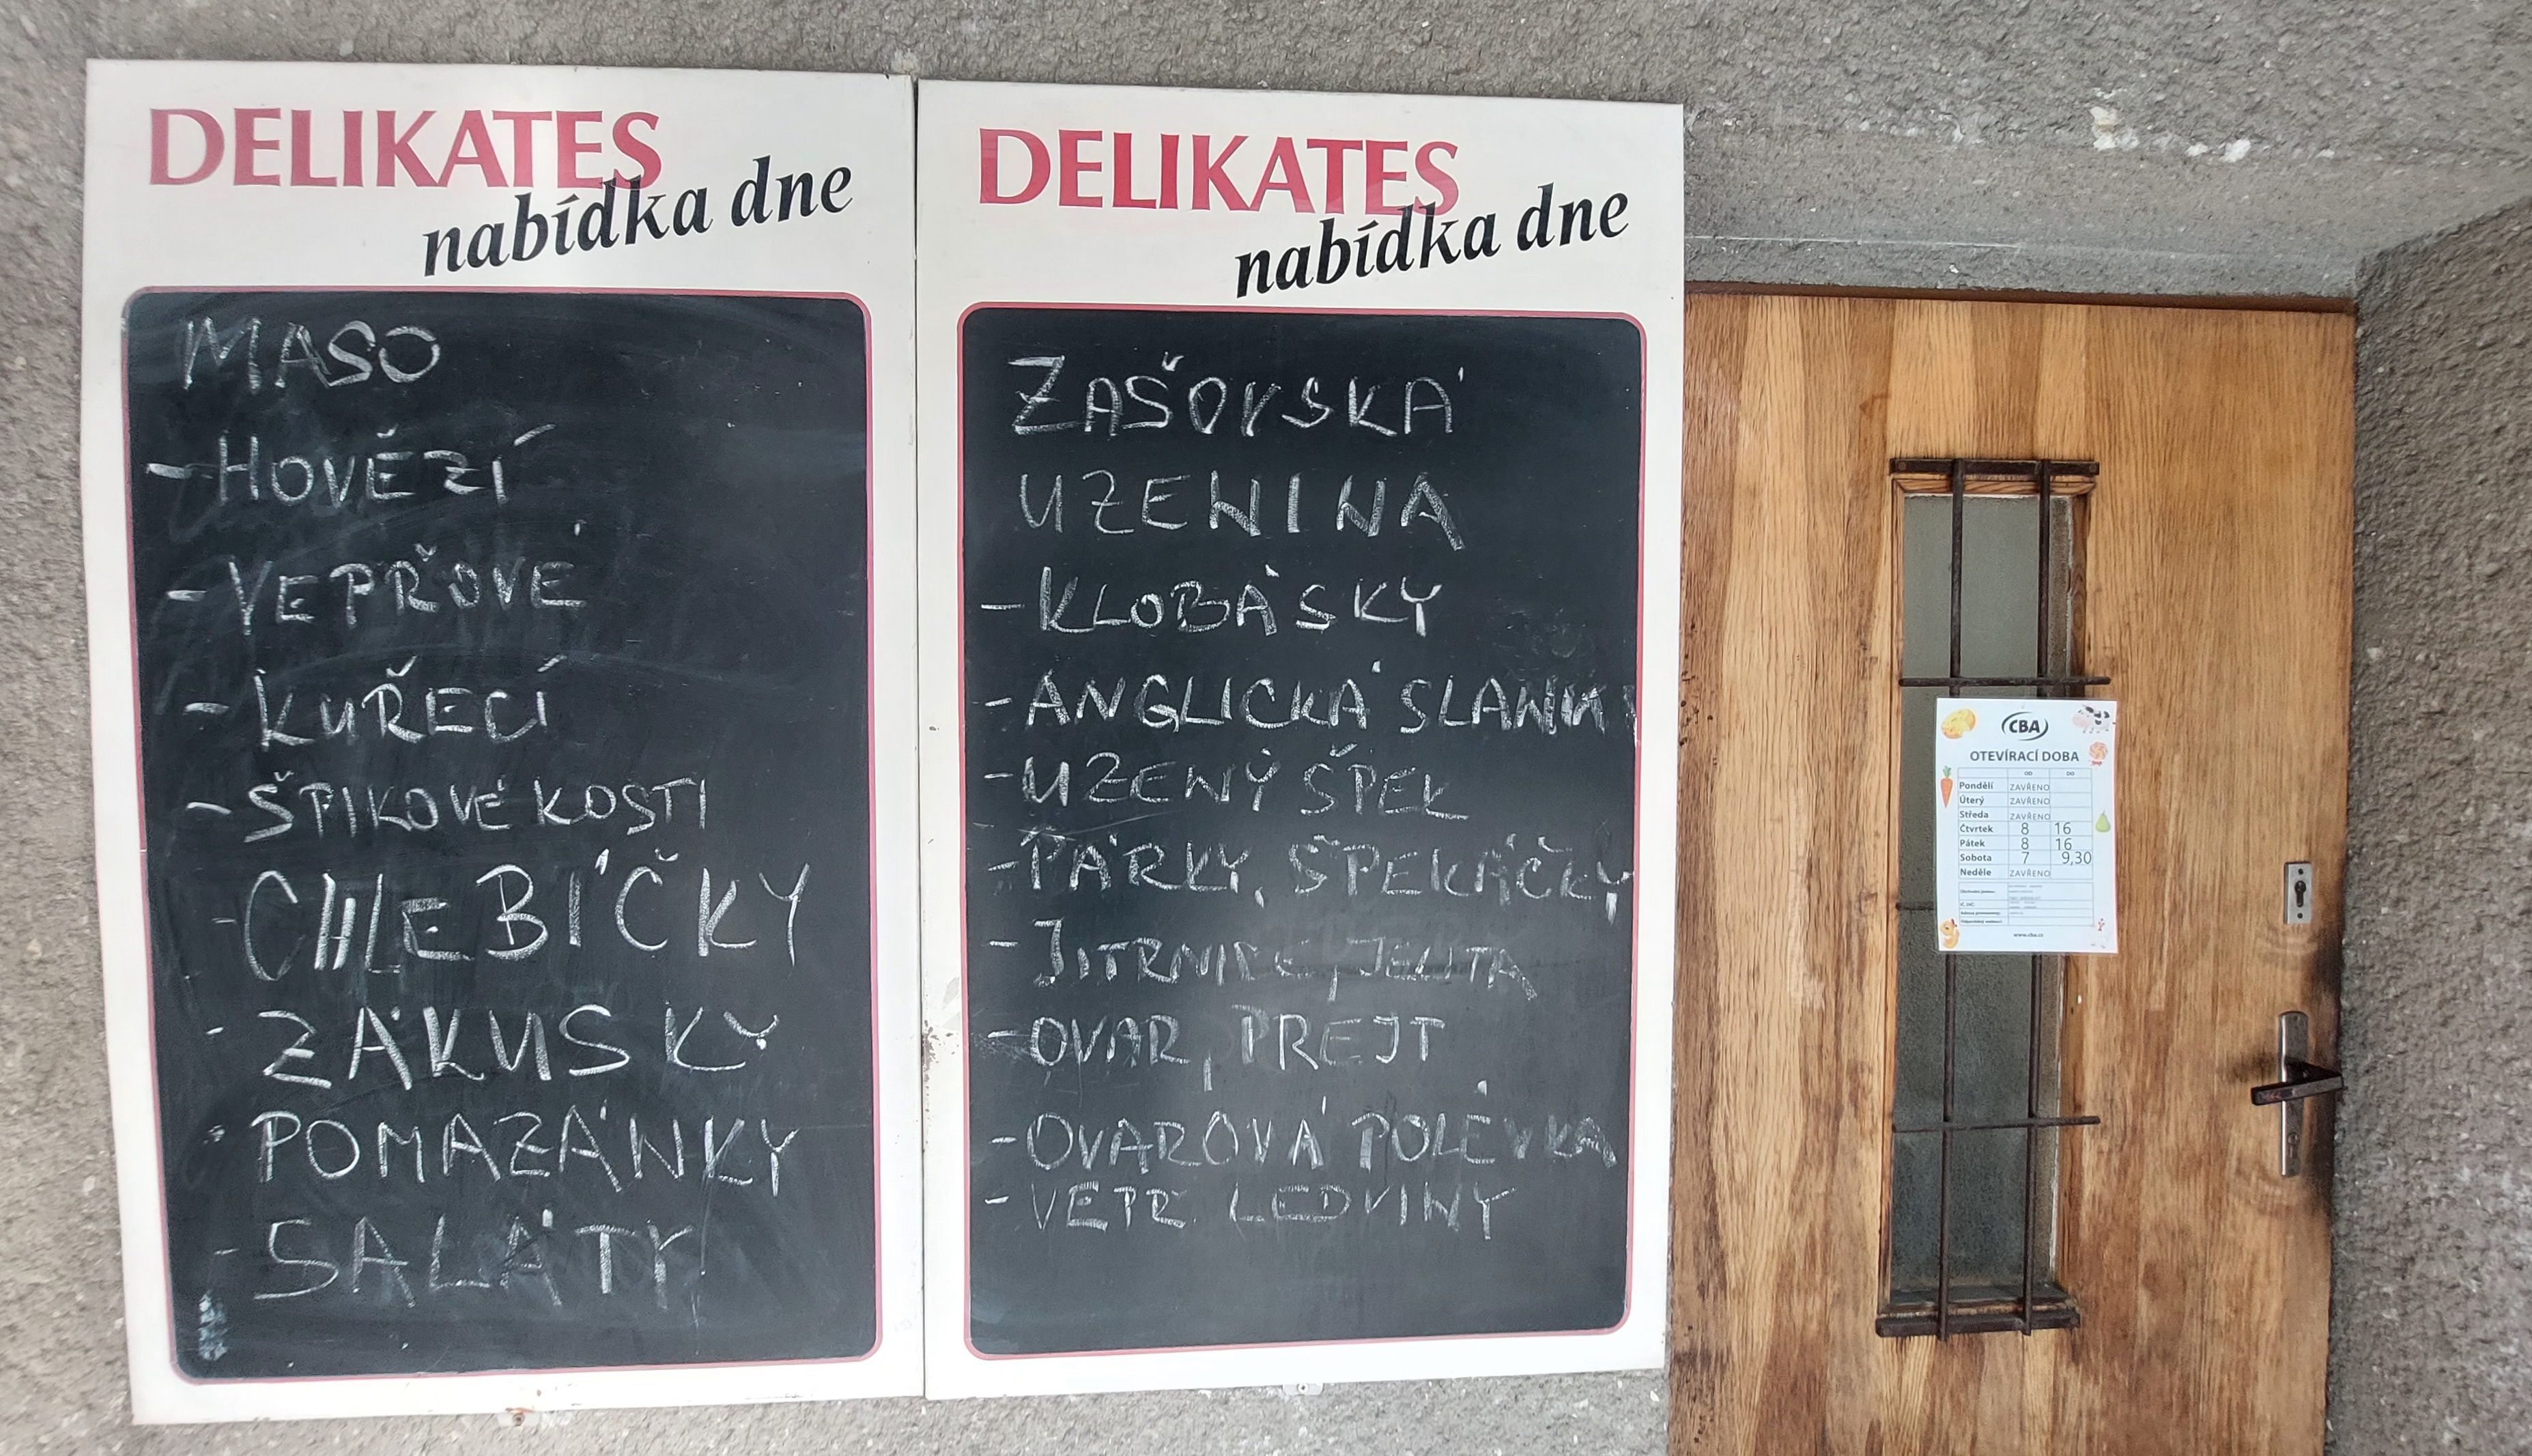 DELIKATES
nabídka dne
MASO
- HOVĚZÍ
- VEPŘOVÉ
- KUŘECÍ
- ŠPIKOVÉ KOSTI
- CHLEBÍČKY
- ZÁKUSKY
- POMAZÁNKY
- SALÁTY
DELIKATES
nabídka dne
ZAŠOVSKÁ
UZENINA
- KLOBÁSKY
- ANGLICKÁ SLANINA
- UZENÝ ŠPEK
- PÁRKY, ŠPEKÁČKY
- JITRNICE, JELITA
- OVAR, PREJT
- OVAROVÁ POLÉVKA
- VEPŘ. LEDVINY
CBA
OTEVÍRACÍ DOBA
OD DO
Pondělí ZAVŘENO
Úterý ZAVŘENO
Středa ZAVŘENO
Čtvrtek 8 16
Pátek 8 16
Sobota 7 9,30
Neděle ZAVŘENO
www.cba.cz